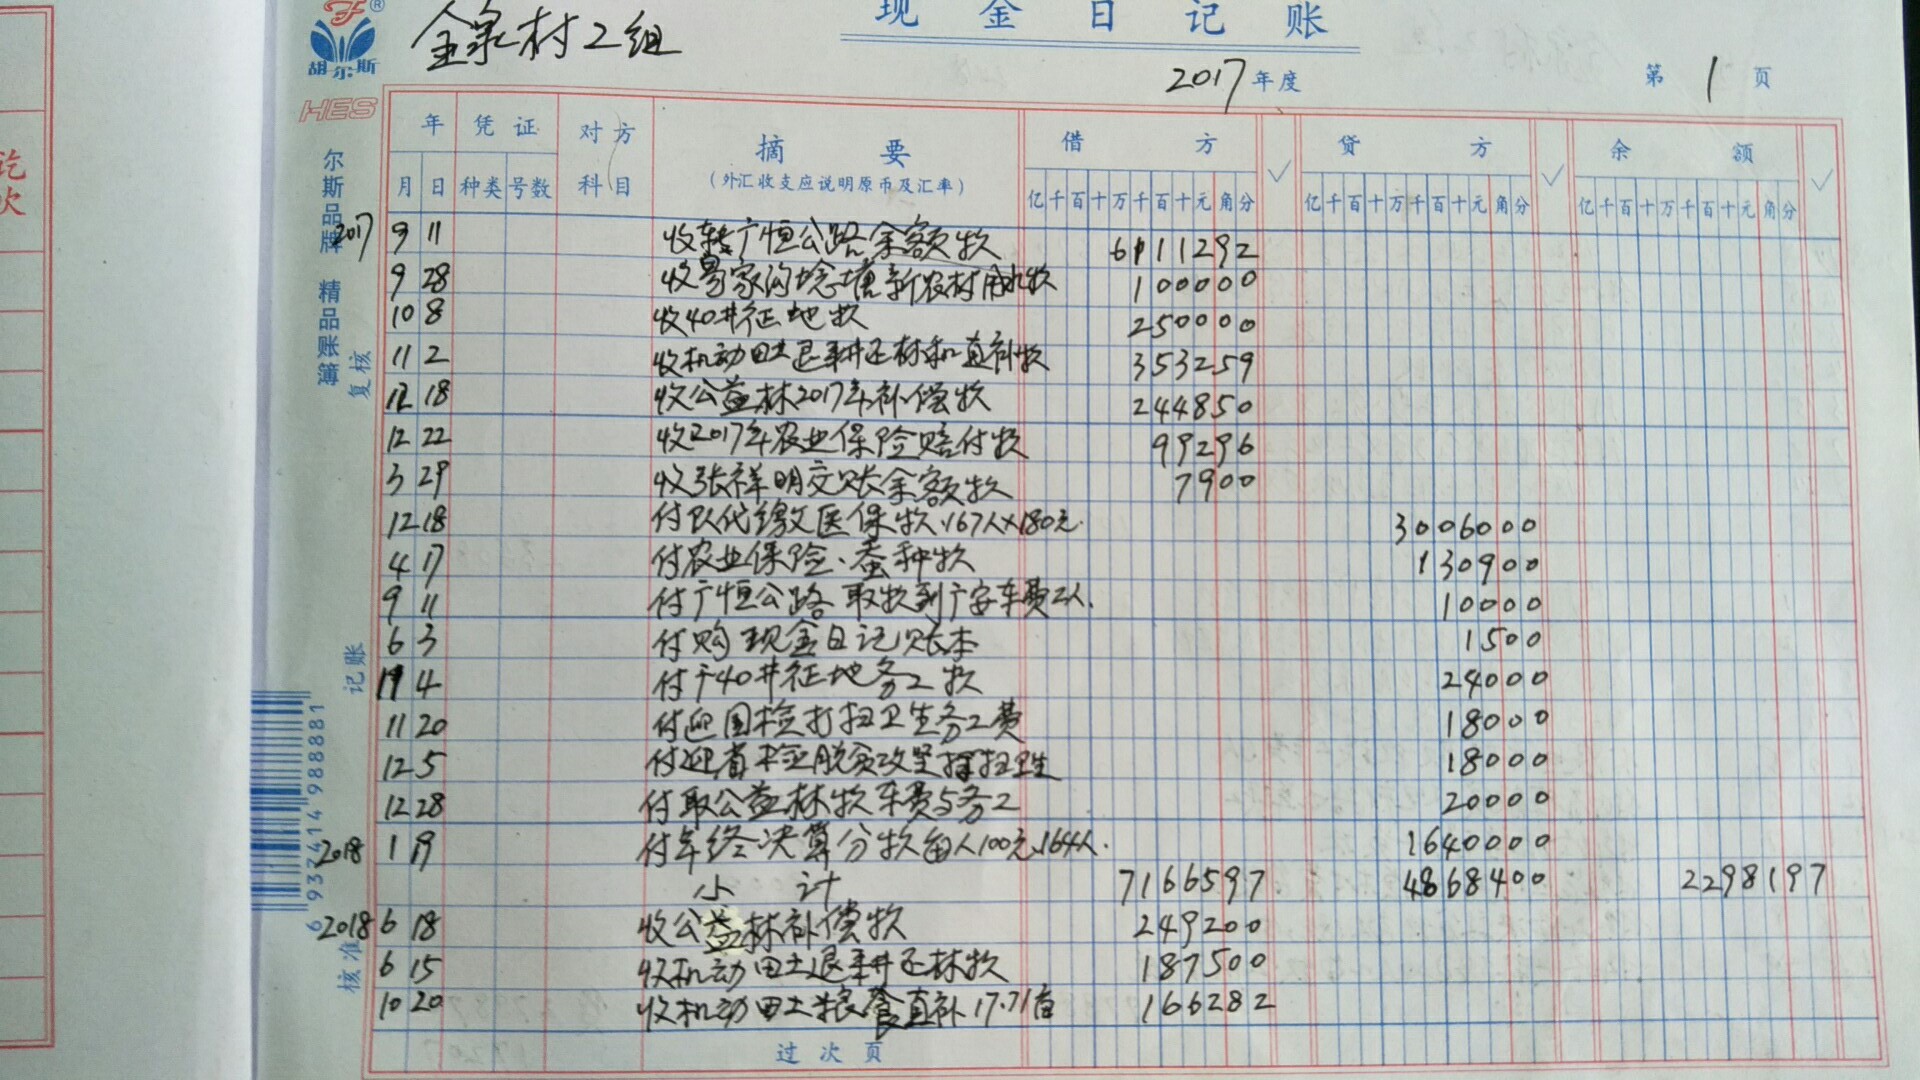 胡尔斯
HES
金泉村2组
现金日记账
2017年度
第1页
年 凭证 对方科目 摘要 借方 ✓ 贷方 ✓ 余额 ✓
月 日 种类 号数 (外汇收支应说明原币及汇率) 亿千百十万千百十元角分 亿千百十万千百十元角分 亿千百十万千百十元角分
2017 9 11 收转广恒公路余额款 6111292
9 28 收易家沟塘新农村用水款 100000
10 8 收40井征地款 250000
11 2 收机动田土退耕还林和直补款 353259
12 18 收公益林2017年补偿款 244850
12 22 收2017年农业保险赔付款 99296
3 29 收张祥明交账余额款 7900
12 18 付队代缴医保款.167人×180元. 3006000
4 17 付农业保险、蚕种款 130900
9 11 付广恒公路取款到广安车费2人. 10000
6 3 付购现金日记账本 1500
11 4 付40井征地务工款 24000
11 20 付迎国检打扫卫生务工费 18000
12 5 付迎省检脱贫攻坚打扫卫生 18000
12 28 付取公益林款车费与务工 20000
2018 1 19 付年终决算分款每人100元.164人. 1640000
小计 7166597 4868400 2298197
2018 6 18 收公益林补偿款 249200
6 15 收机动田土退耕还林款 187500
10 20 收机动田土粮食直补17.71亩 166282
过次页
尔斯品牌 精品账簿
复核
记账
核准
6 937414 988881